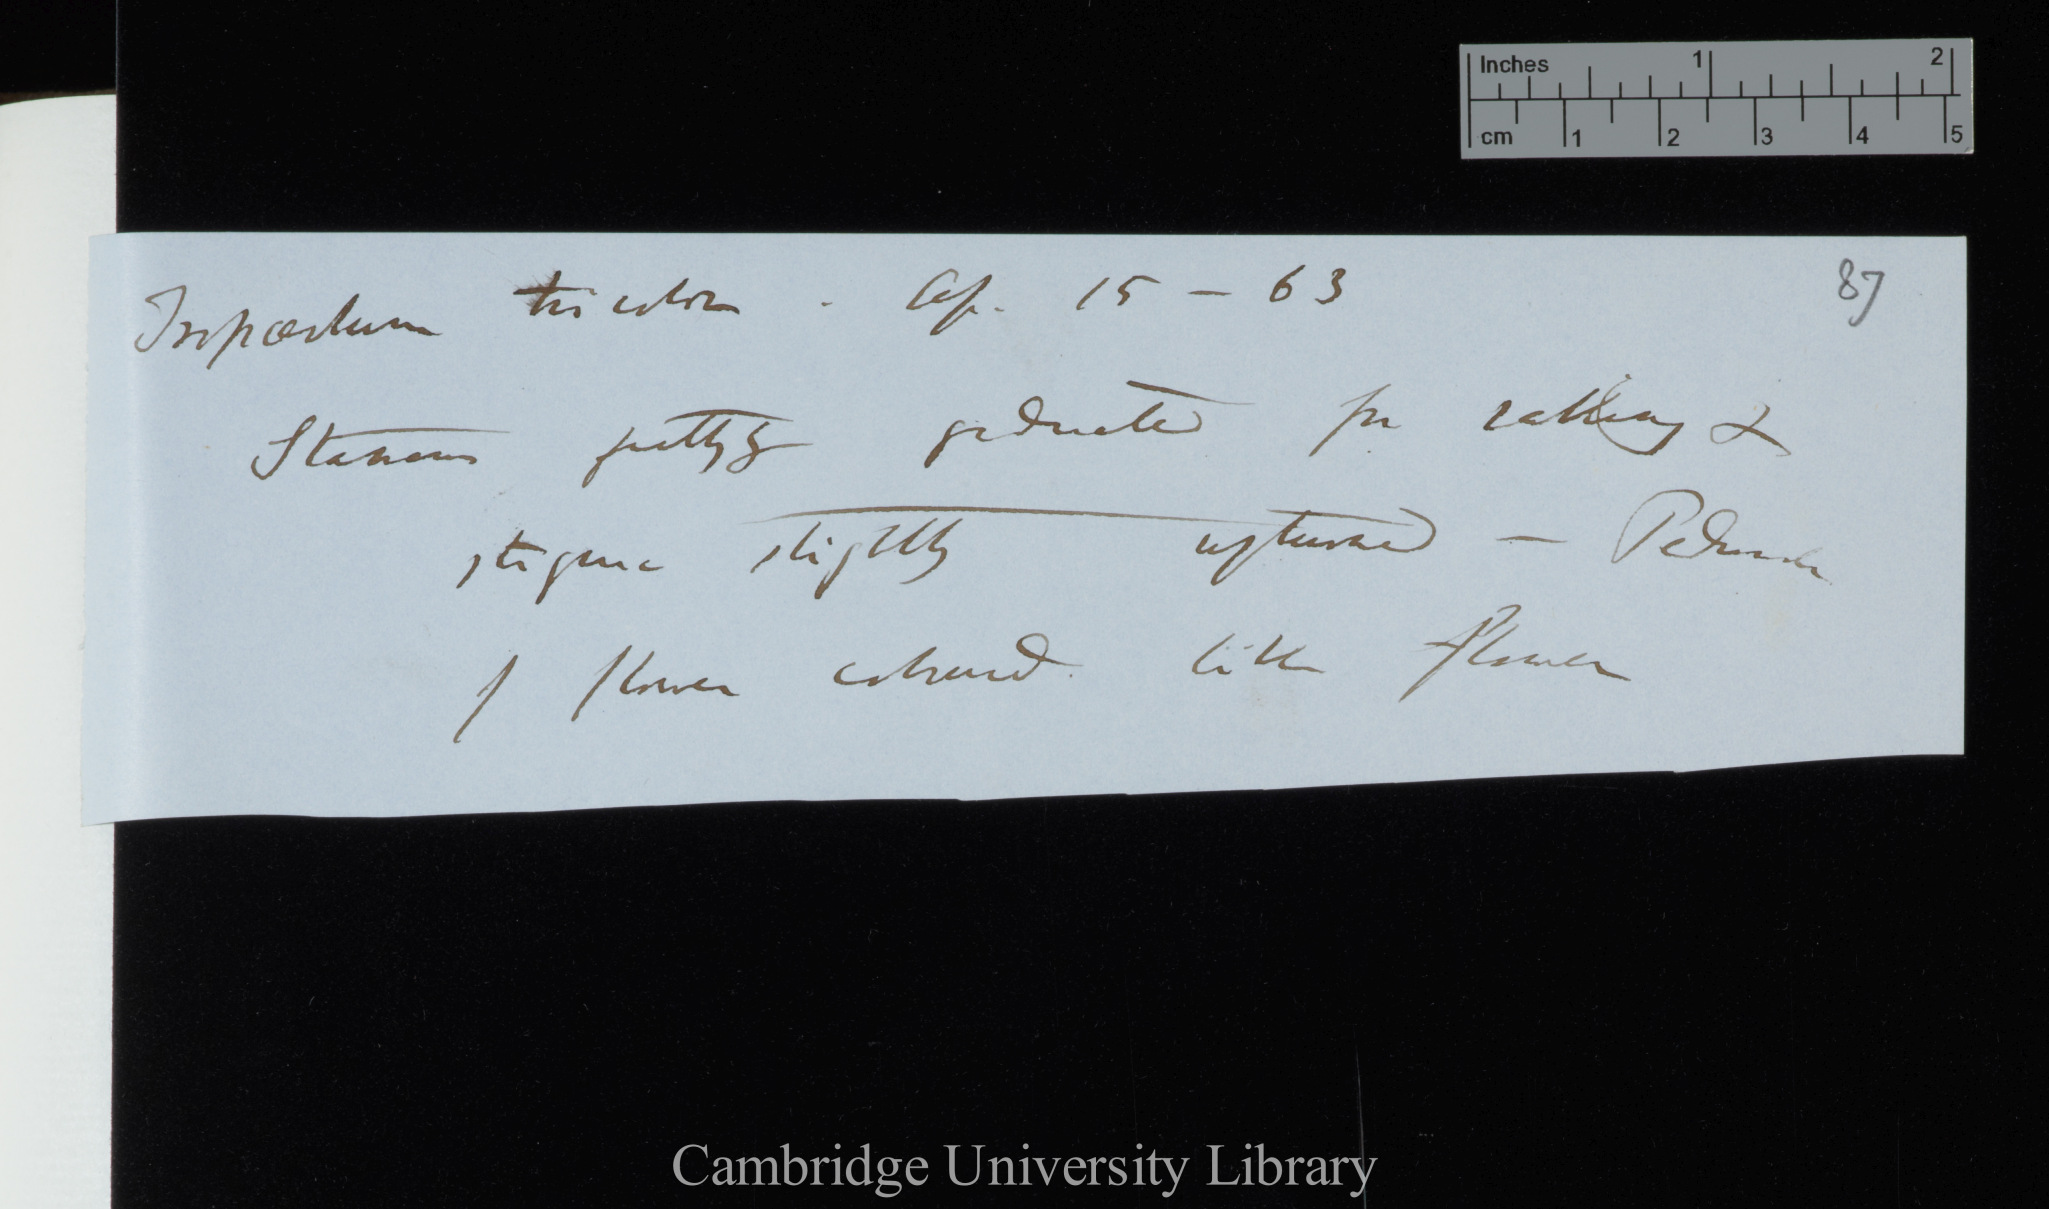 Inches 1 2
cm 1 2 3 4 5
87
Tropæolum tricolor. Ap. 15 — 63
Stamens prettily graduated for &
stigma slightly upturned — Peduncle
of flower coloured like flower
Cambridge University Library